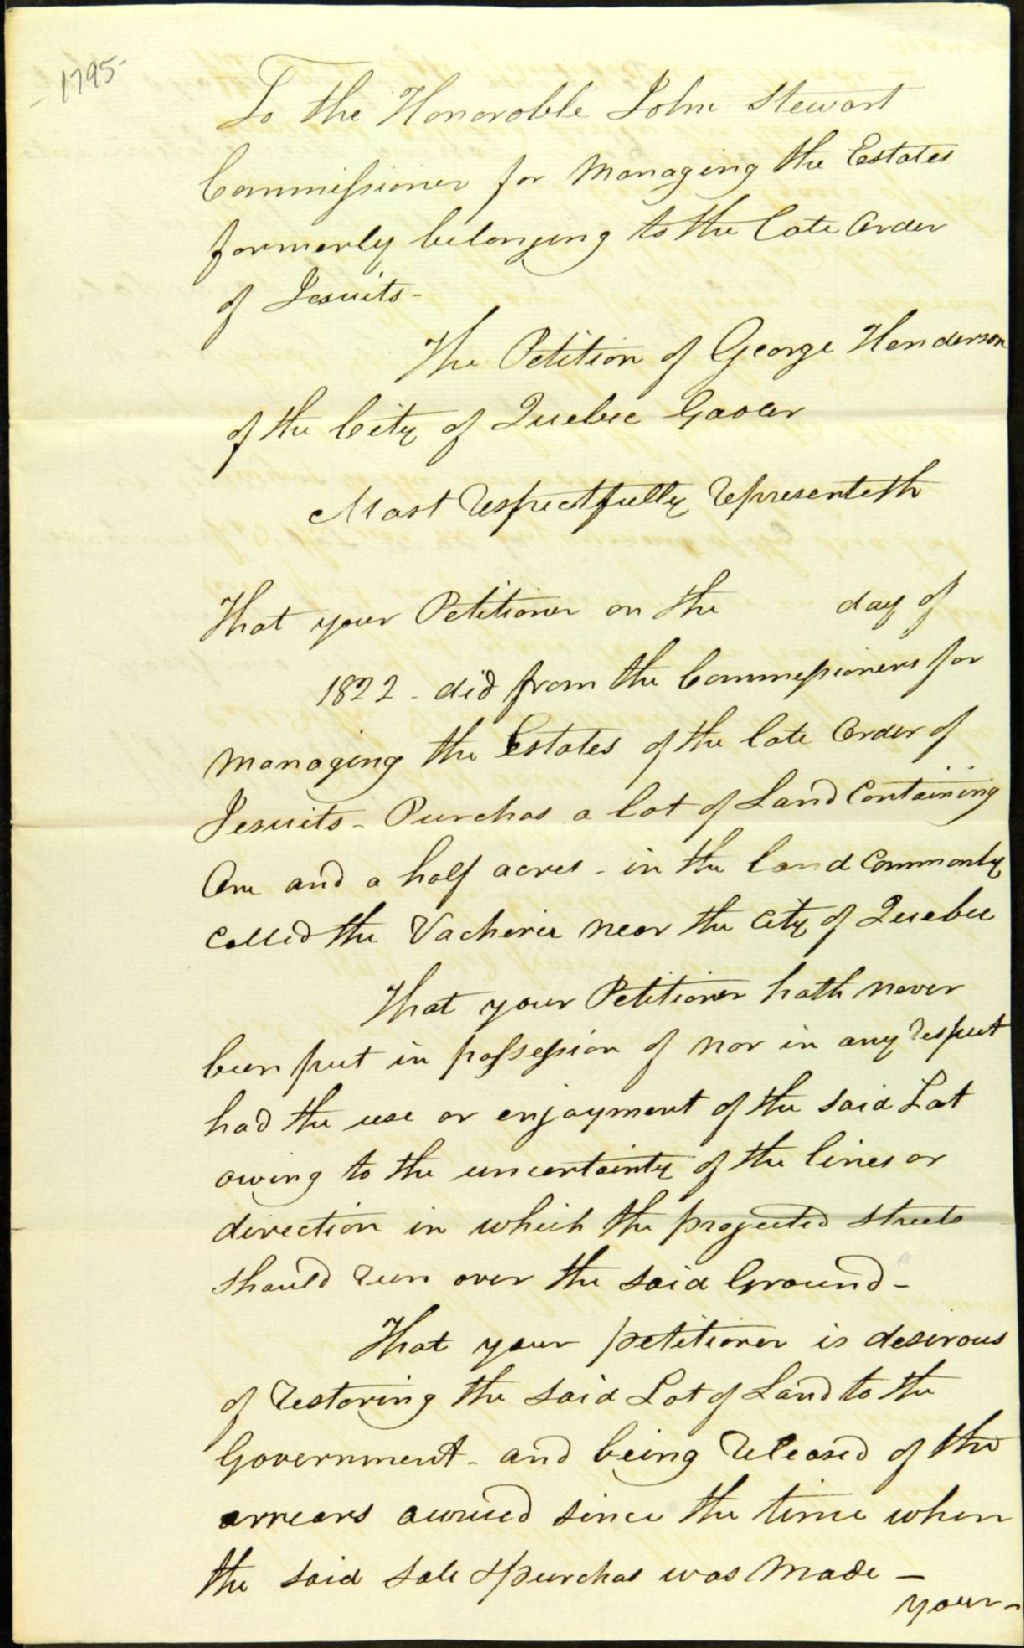 1795
To the Honorable John Stewart
Commissioner for managing the Estates
formerly belonging to the late Order
of Jesuits -
The Petition of George Henderson
of the City of Quebec Gaoler
Most respectfully representeth
That your Petitioner on the day of
1822 - did from the Commissioners for
managing the Estates of the late Order of
Jesuits - Purchas a lot of Land Containing
One and a half acres - in the land Commonly
called the Vacherie near the City of Quebec
That your Petitioner hath never
been put in possession of nor in any respect
had the use or enjoyment of the said Lot
owing to the uncertainty of the lines or
direction in which the projected streets
should run over the said Ground -
That your petitioner is desirous
of restoring the said Lot of Land to the
Government - and being released of the
arrears accrued since the time when
the said sale & purchas was made -
your -